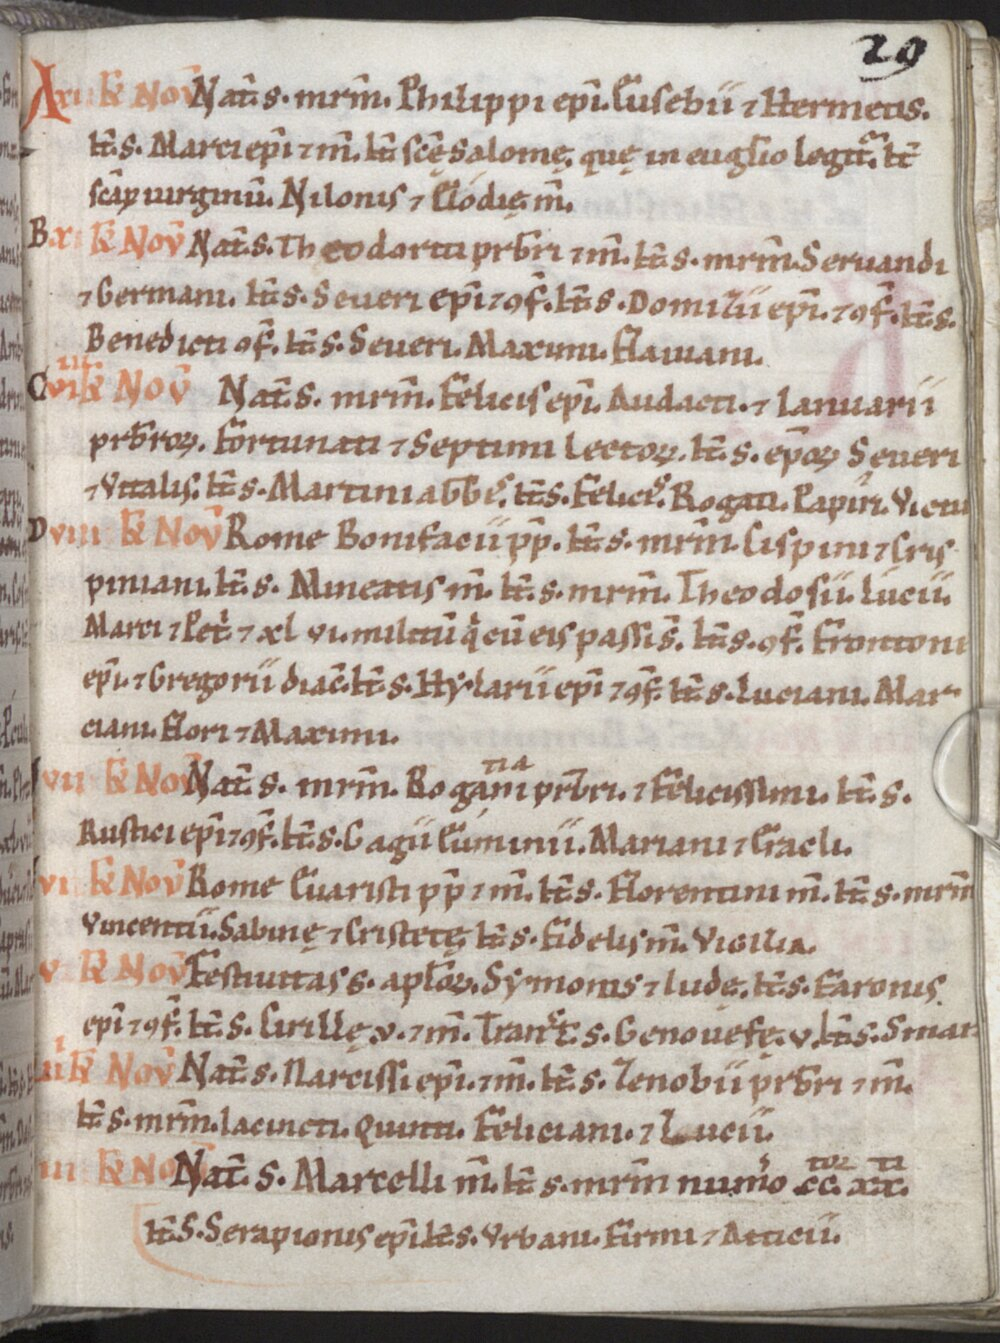 20
A xi kł Nov̄ Nat̄. s. mrm̄. Philippi ep̄i. Eusebii ⁊ Hermetis.
It̄. s. Marci ep̄i ⁊ m̄. It̄ sc̄ę Salomę. quę in euḡlio legit᷑. It̄
sc̄aꝝ uirginū. Nilonis ⁊ Elodię m̄.
B x kł Nov̄ Nat̄. s. Theodoriti prb̄ri ⁊ m̄. It̄. s. mrm̄. Seruandi
⁊ Germani. It̄. s. Seueri ep̄i ⁊ ꝯf̄. It̄. s. Domitii ep̄i. ⁊ ꝯf̄. It̄. s.
Benedicti ꝯf̄. It̄. s. Seueri. Maximi. Flauiani.
C viiii kł Nov̄ Nat̄. s. mrm̄. Felicis ep̄i. Audacti. ⁊ Ianuarii
prb̄roꝝ. Fortunati ⁊ Septimi Lectoꝝ. It̄. s. ep̄oꝝ Seueri
⁊ Vitalis. It̄. s. Martini abb̄is. It̄. s. Felicis. Rogati. Papiri. Victu
D viii kł Nov̄ Rome Bonifacii pp̄. It̄. s. mrm̄. Cispini ⁊ Cris
piniani. It̄. s. Mineatis m̄. It̄. s. mrm̄. Theodosii. Lucii.
Marci ⁊ Pet̄. ⁊ xl vi. militū q̇ cū eis passi s̄. It̄. s. ꝯf̄. Frontoni
ep̄i. ⁊ Gregorii diac̄. It̄. s. Hylarii ep̄i ⁊ ꝯf̄. It̄. s. Luciani. Mar
ciani. Flori ⁊ Maximi.
vii kł Nov̄ Nat̄. s. mrm̄. Rogatiani prb̄ri. ⁊ Felicissimi. It̄. s.
Rustici ep̄i ⁊ ꝯf̄. It̄. s. Gagii Euminii. Mariani ⁊ Gracli.
vi kł Nov̄ Rome Euaristi pp̄ ⁊ m̄. It̄. s. Florentini m̄. It̄. s. mrm̄
Vincentii. Sabinę ⁊ Cristetę. It̄. s. Fidelis m̄. Vigilia.
v kł Nov̄ Festiuitas s. apl̄oꝝ. Symonis ⁊ Iudę. It̄. s. Faronis
ep̄i ⁊ ꝯf̄. It̄. s. Cirillę. v. ⁊ m̄. Tran᷑t̄. s. Genouefę. v. It̄. s. Smar
iiii kł Nov̄ Nat̄. s. Narcissi ep̄i. ⁊ m̄. It̄. s. Zenobii prb̄ri ⁊ m̄.
It̄. s. mrm̄. Iacincti. Quinti. Feliciani. ⁊ Lucii.
iii kł Nov̄ Nat̄. s. Marcelli m̄. It̄ s. mrm̄ numo cc. xx.
It̄. s. Serapionis ep̄i. It̄. s. Vrbani. Firmi ⁊ Atticii.